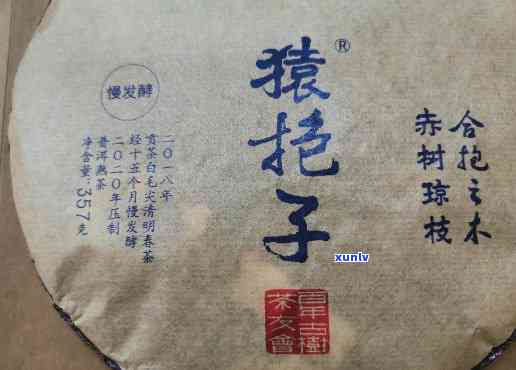 合抱之木
赤树琼枝
猿抱子®
慢发酵
二〇一八年
贡茶白毛尖清明春茶
经十五个月慢发酵
二〇二〇年压制
普洱熟茶
净含量:357克
百年古树
茶友會
xuniv